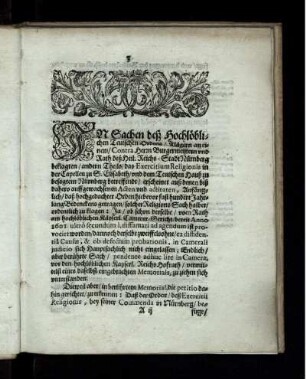 3
IN Sachen deß Hochlöbli-
chen Teutschen Ordens / Klägern an ei-
nem / Contra Herrn Burgermeistern und
Rath deß Heil. Reichs-Stadt Nürnberg
beklagten / andern Theils / das Exercitium Religionis in
der Capellen zu S. Elisabeth / und dem Teutschen Hauß zu
besagtem Nürnberg betreffende / erscheinet auß denen biß
dahero auffgewachsenen Acten und additionen, Anfäng-
lich / daß hochgedachter Orden hiebevor fast hundert Jahr
lang Bedenckens getragen / solcher Religions Sach halber
endlich zu klagen: Ja / ob schon derselbe / vom Rath
am hochlöblichen Kayserl. Cammer-Gericht
citirt secundùm l. diffamari ad agendum ist pro-
vocirt worden / dannoch derselbe zweiffels ohne / ex diffiden-
tiâ Causæ, & ob defectum probationis, in Camerali
judicio sich hauptsächlich nicht eingelassen / Endlich /
aber berührte Sach / pendente adhuc lite in Camera,
vor den hochlöblichen Kayserl. Reichs-Hofrath / vermit-
telst eines daselbst eingebrachten Memorials, zu ziehen sich
unterstanden.
Die weil aber / in berührtem Memorial, die petitio da-
hin gerichtet / zu nehmen: Daß der Orden / deß Exercitii
Religionis, bey seiner Commenda in Nürnberg / bes-
A ij